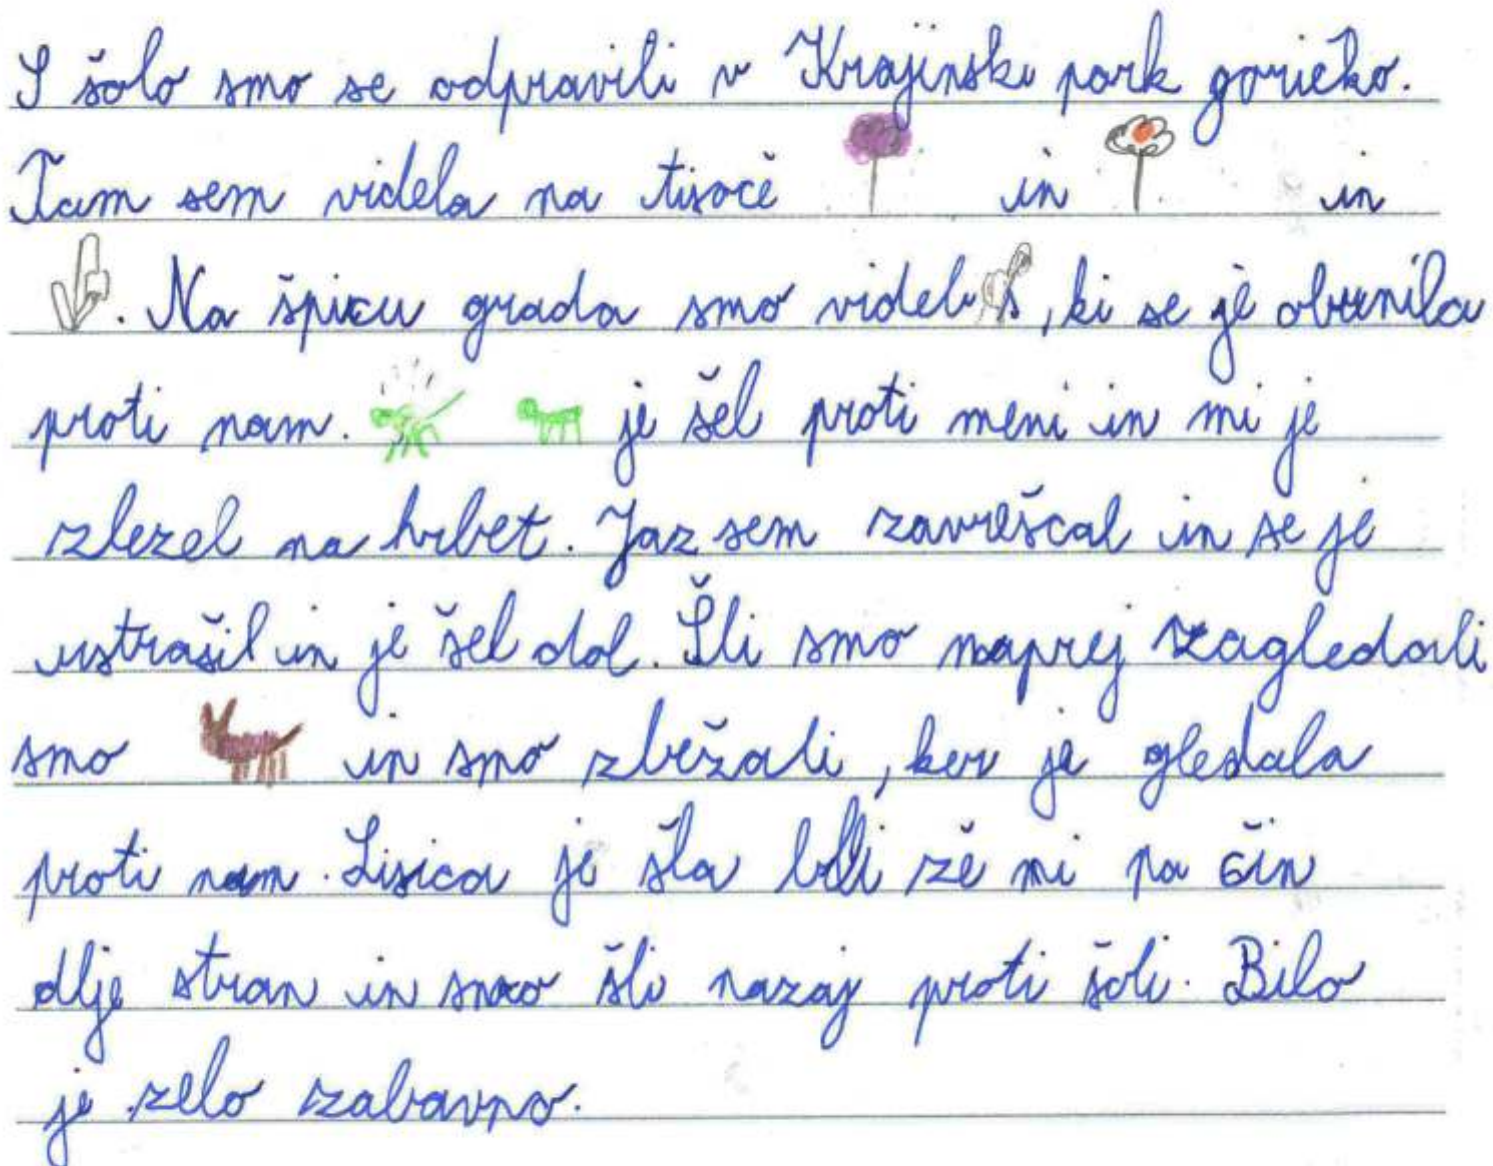 S šolo smo se odpravili v Krajinski park goričko.
Tam sem videla na tisoče in in
. Na špicu grada smo videli , ki se je obrnila
proti nam. je šel proti meni in mi je
zlezel na hrbet. Jaz sem zavreščal in se je
ustrašil in je šel dol. Šli smo naprej zagledali
smo in smo zbežali, ker je gledala
proti nam. Lisica je šla bli že mi pa čin
dlje stran in smo šli nazaj proti šoli. Bilo
je zelo zabavno.